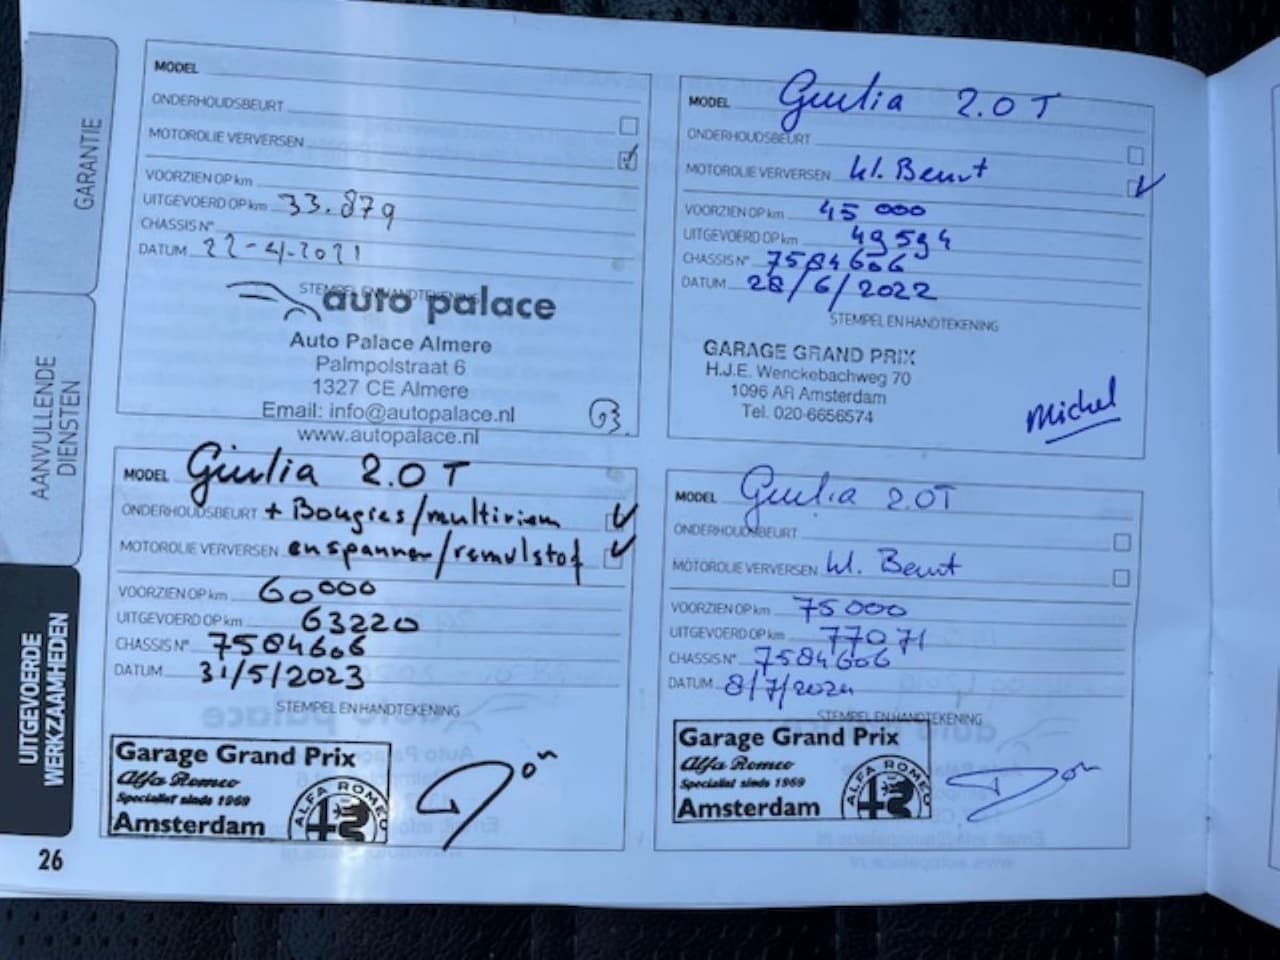 GARANTIE
AANVULLENDE
DIENSTEN
UITGEVOERDE
WERKZAAMHEDEN
26
MODEL
ONDERHOUDSBEURT
MOTOROLIE VERVERSEN
VOORZIEN OP km
UITGEVOERD OP km 33.879
CHASSIS N°
DATUM 22-4-2021
STEMPEL EN HANDTEKENING
auto palace
Auto Palace Almere
Palmpolstraat 6
1327 CE Almere
Email: info@autopalace.nl
www.autopalace.nl
MODEL Giulia 2.0 T
ONDERHOUDSBEURT
MOTOROLIE VERVERSEN kl. Beurt
VOORZIEN OP km 45000
UITGEVOERD OP km 49594
CHASSIS N° 7584606
DATUM 28/6/2022
STEMPEL EN HANDTEKENING
GARAGE GRAND PRIX
H.J.E. Wenckebachweg 70
1096 AR Amsterdam
Tel. 020-6656574
Michel
MODEL Giulia 2.0 T
ONDERHOUDSBEURT + Bougies/multiriem
MOTOROLIE VERVERSEN en spanner/remvlstof
VOORZIEN OP km 60000
UITGEVOERD OP km 63220
CHASSIS N° 7584606
DATUM 31/5/2023
STEMPEL EN HANDTEKENING
Garage Grand Prix
Alfa Romeo
Specialist sinds 1969
Amsterdam
ALFA ROMEO
MODEL Giulia 2.0T
ONDERHOUDSBEURT
MOTOROLIE VERVERSEN kl. Beurt
VOORZIEN OP km 75000
UITGEVOERD OP km 77071
CHASSIS N° 7584606
DATUM 8/7/2024
STEMPEL EN HANDTEKENING
Garage Grand Prix
Alfa Romeo
Specialist sinds 1969
Amsterdam
ALFA ROMEO